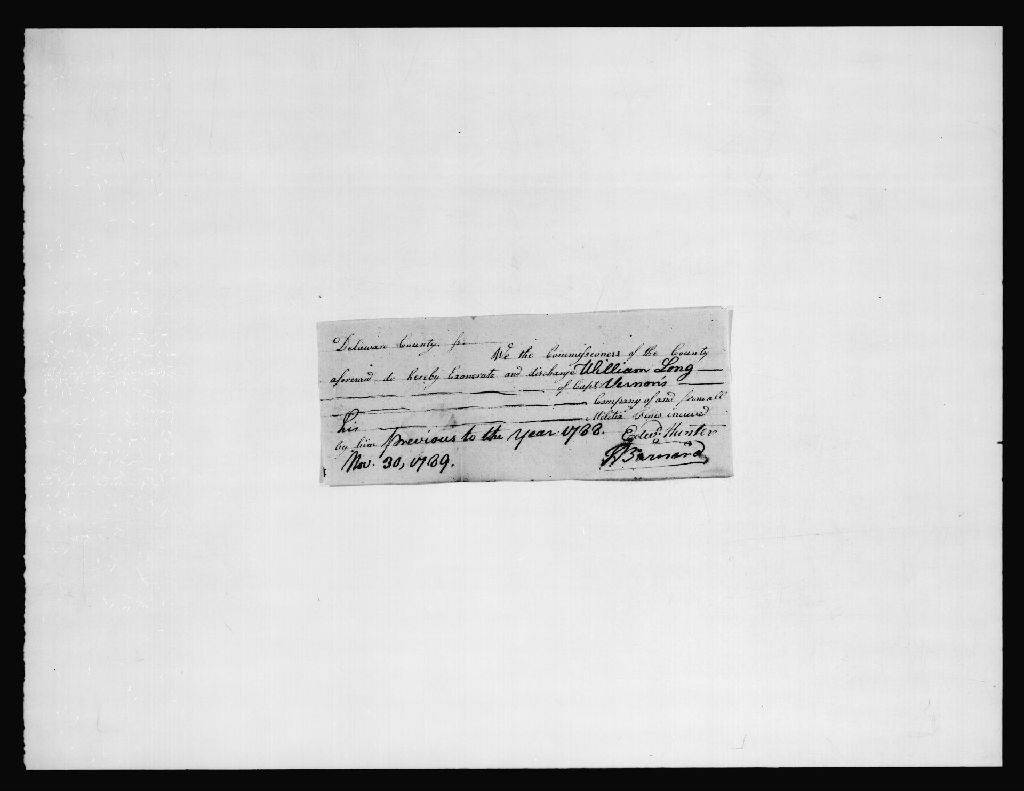 Delaware County ss
We the Commissioners of the County
aforesaid do hereby Exonerate and discharge William Long
of Capt Vernon's
Company of and from all
his Militia Fines incured
by him previous to the Year 1788.
Edwd. Hunter
Nov. 30, 1789. Barnard